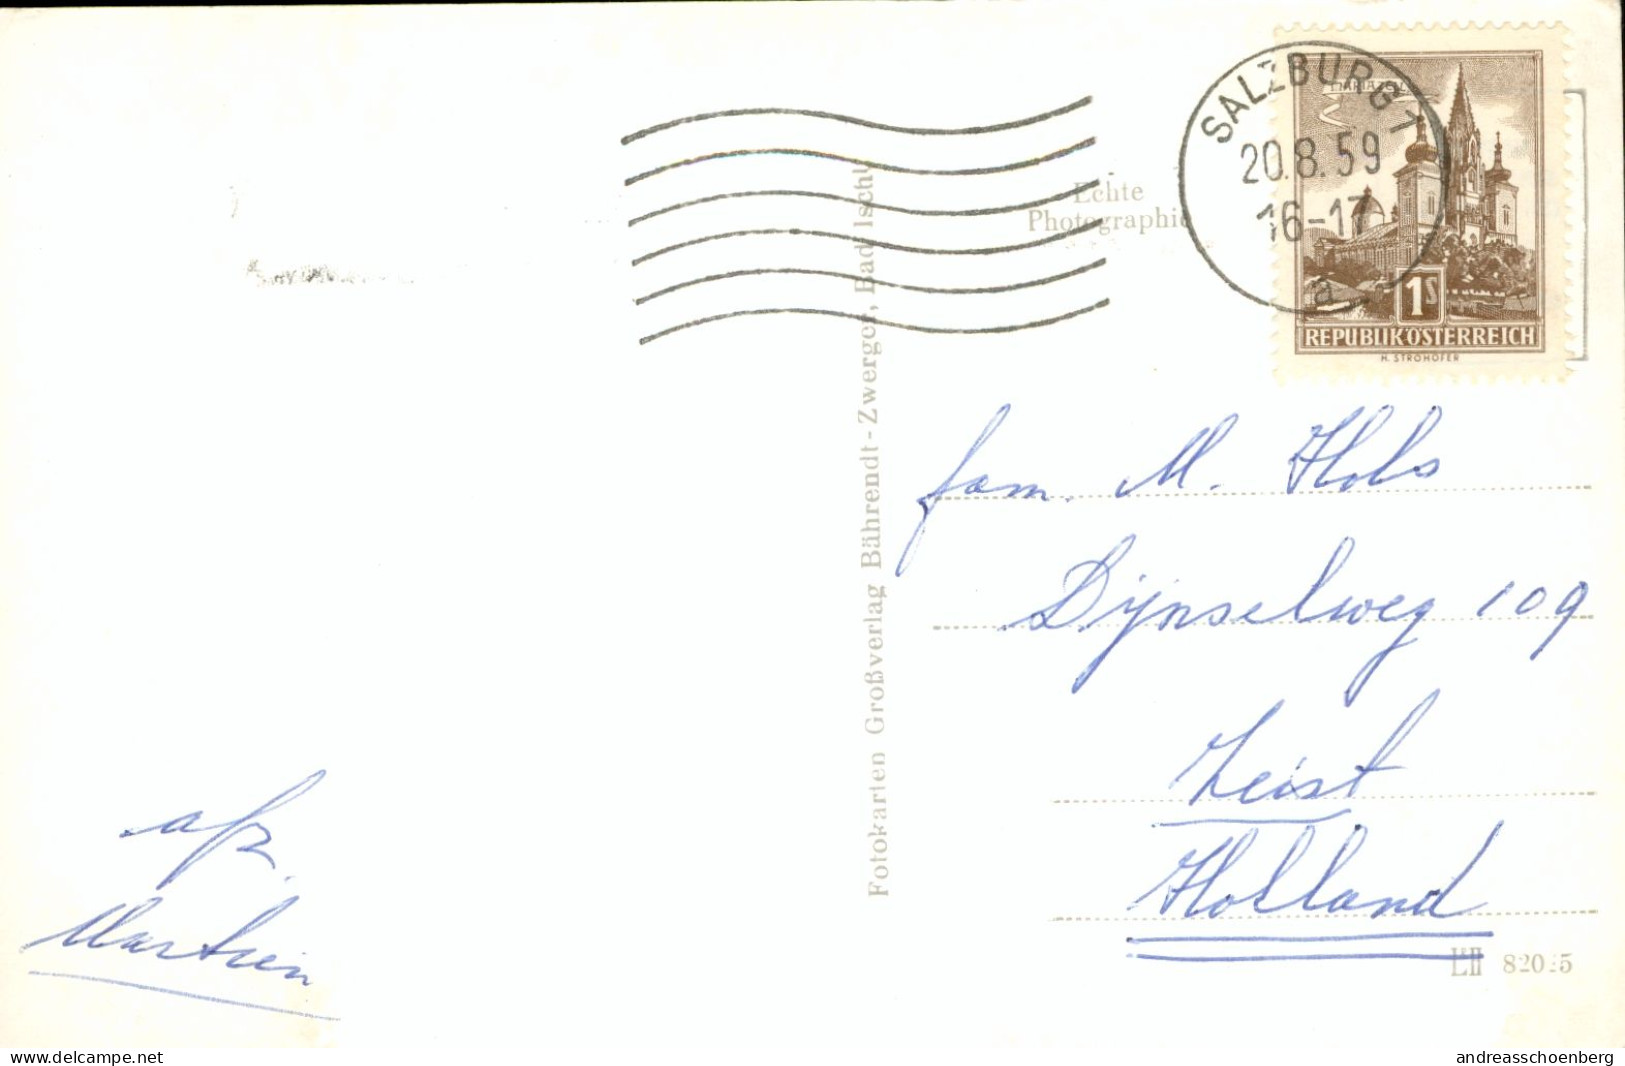 SALZBURG 7
20.8.59
16-17
a
MARIAZELL
1S
REPUBLIK ÖSTERREICH
H. STROHOFER
Echte
Photographie
Fotokarten Großverlag Bährendt-Zwerger, Bad Ischl
fam. M. Hols
Dijnselweg 109
Zeist
Holland
afz.
Martien
delcampe.net
andreasschoenberg